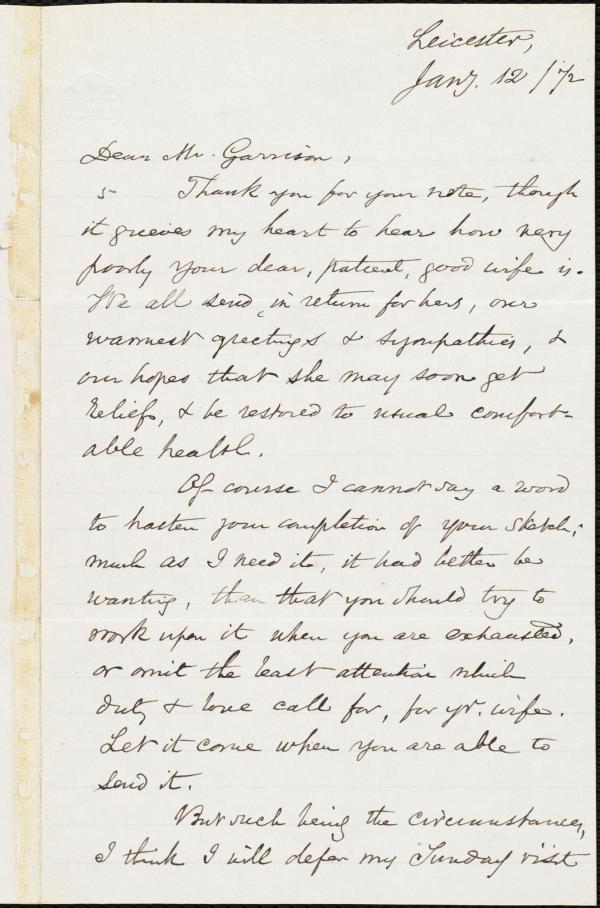 Leicester,
Jany. 12 /72
Dear Mr. Garrison,
Thank you for your note, though
it grieves my heart to hear how very
poorly your dear, patient, good wife is.
We all send, in return for hers, our
warmest greetings & sympathies, &
our hopes that she may soon get
relief, & be restored to usual comfort-
able health.
Of course I cannot say a word
to hasten your completion of your sketch;
much as I need it, it had better be
wanting, than that you should try to
work upon it when you are exhausted,
or omit the least attention which
duty & love call for, for yr. wife.
Let it come when you are able to
send it.
But such being the circumstances,
I think I will defer my Sunday visit